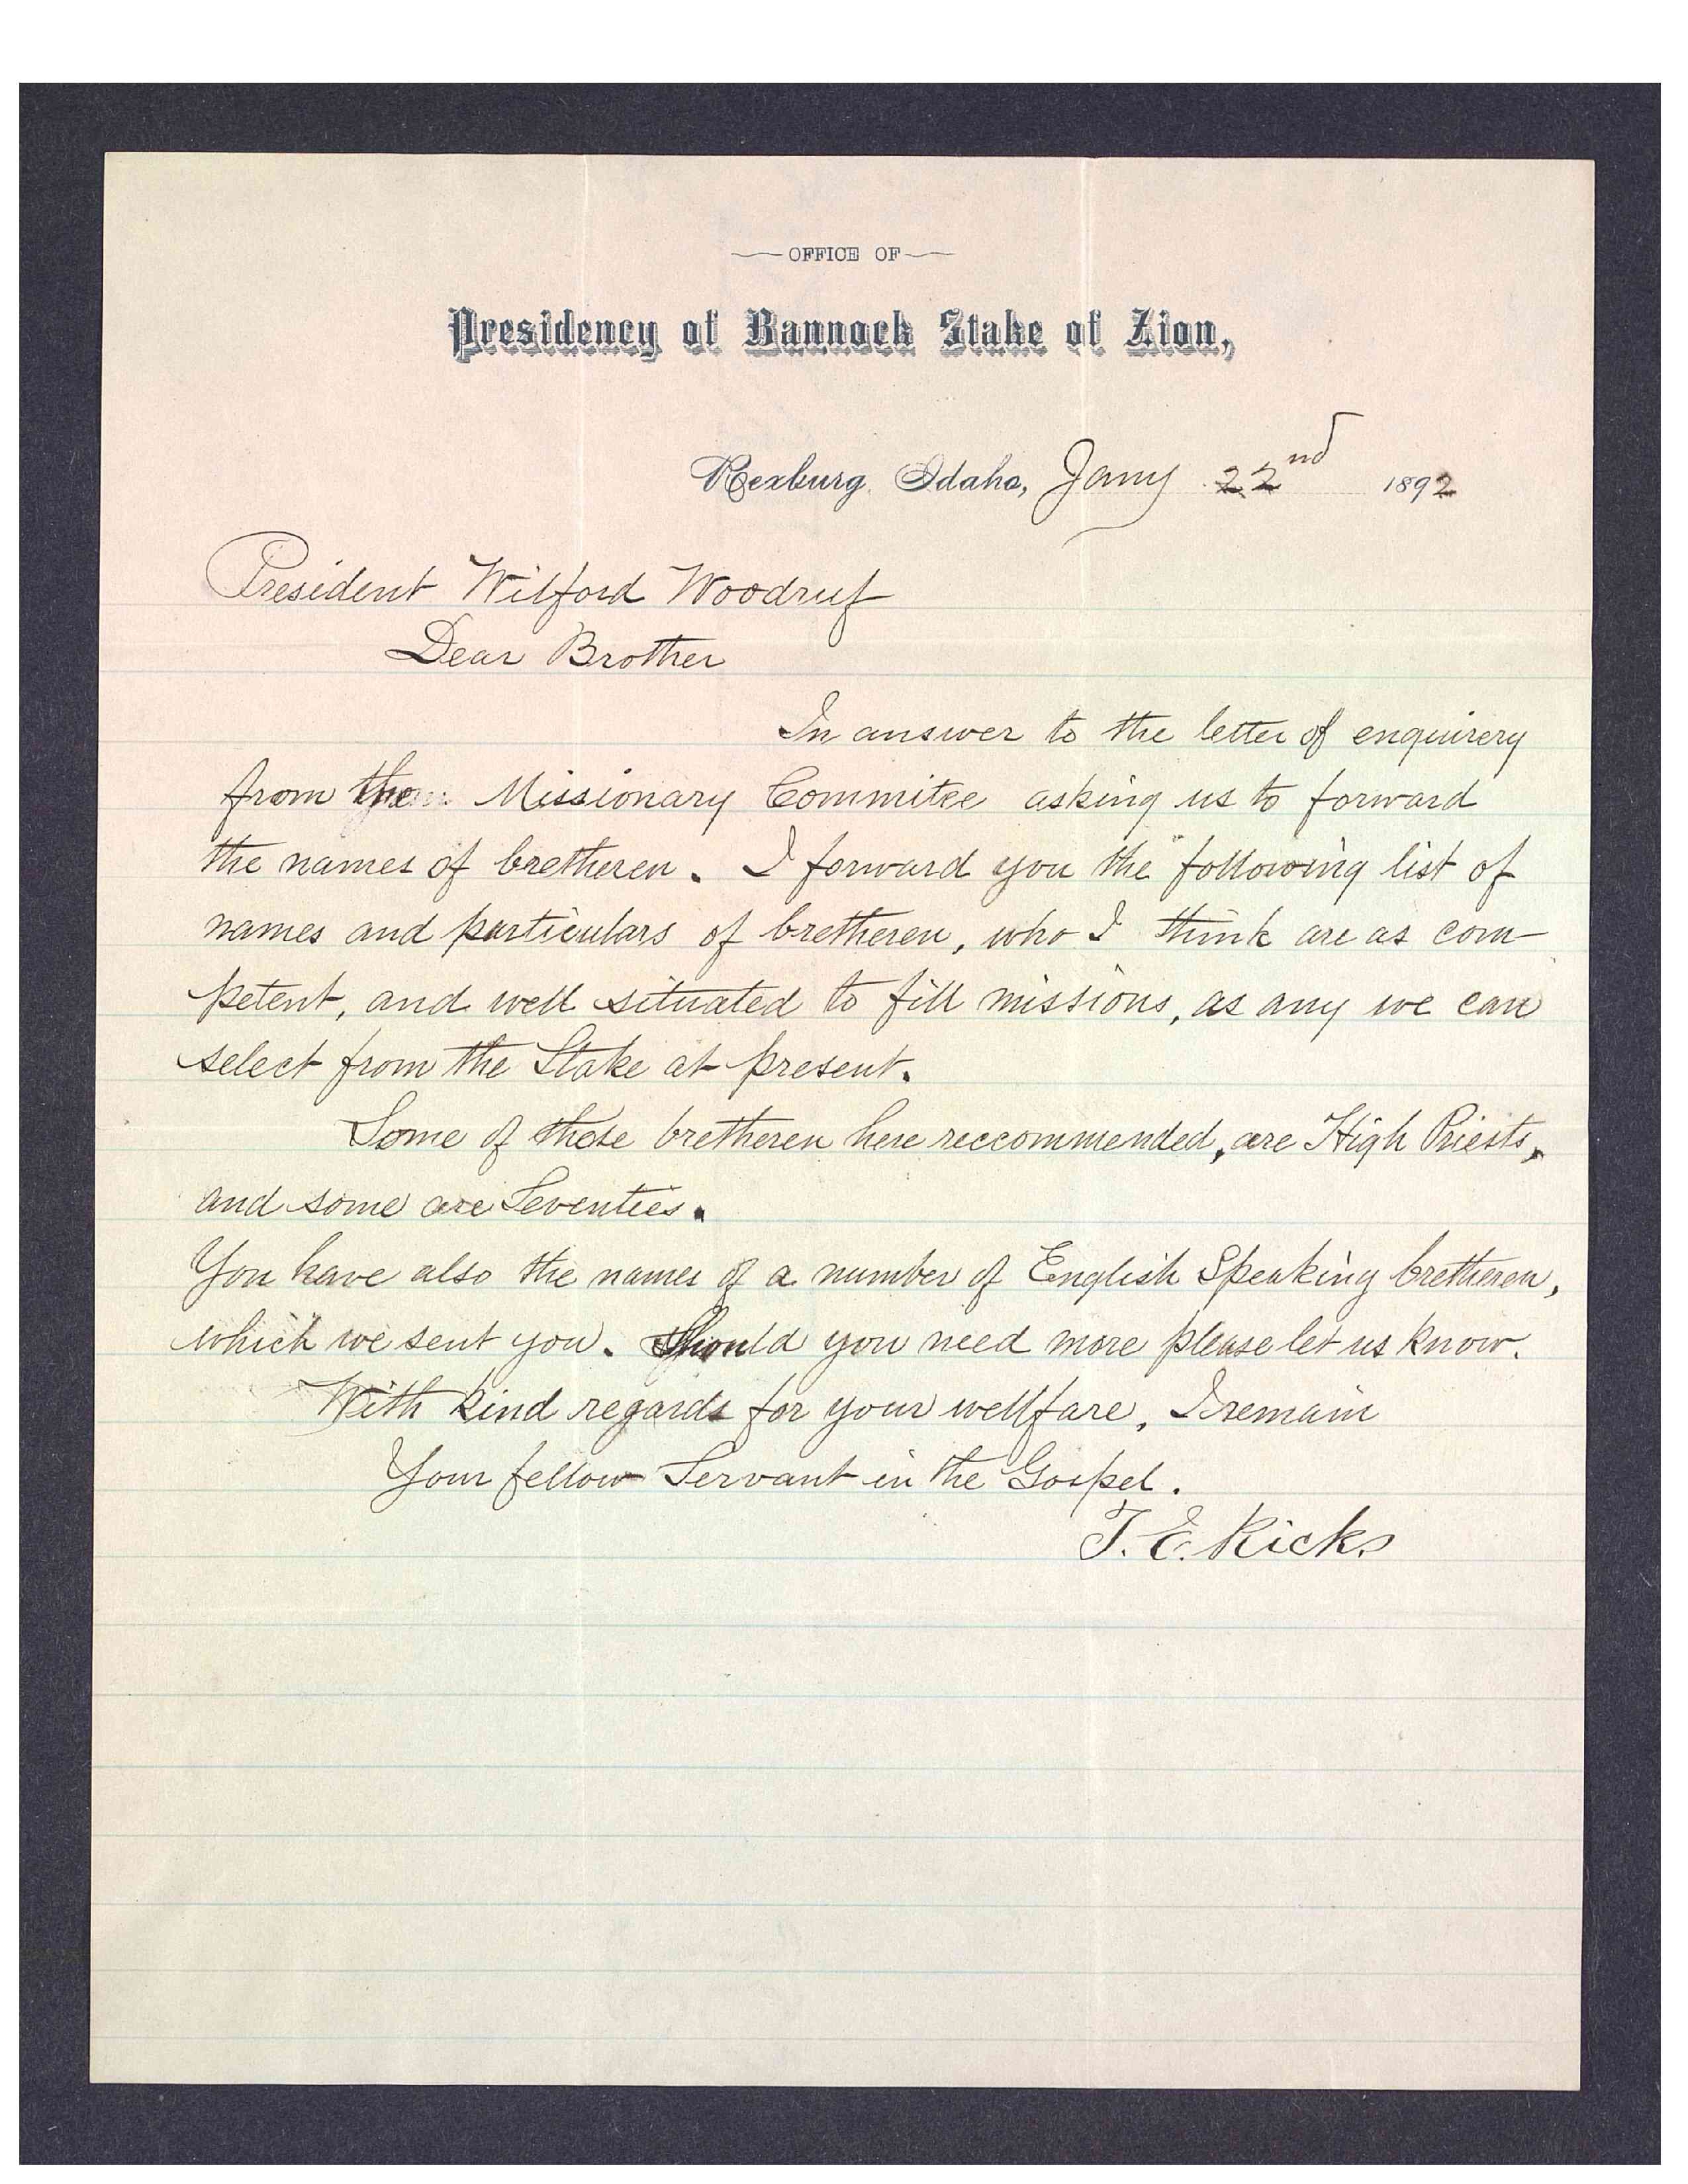 OFFICE OF
Presidency of Bannock Stake of Zion,
Rexburg, Idaho, Jany 22nd 1892
President Wilford Woodruf
Dear Brother
In answer to the letter of enquirery
from the Missionary Commitee asking us to forward
the names of bretheren. I forward you the following list of
names and particulars of bretheren, who I think are as com-
petent, and well situated to fill missions, as any we can
select from the Stake at present.
Some of these bretheren here reccommended, are High Priests,
and some are Seventies.
You have also the names of a number of English Speaking bretheren,
which we sent you. Should you need more please let us know.
With kind regards for your wellfare, I remain
Your fellow Servant in the Gospel.
T. E. Ricks